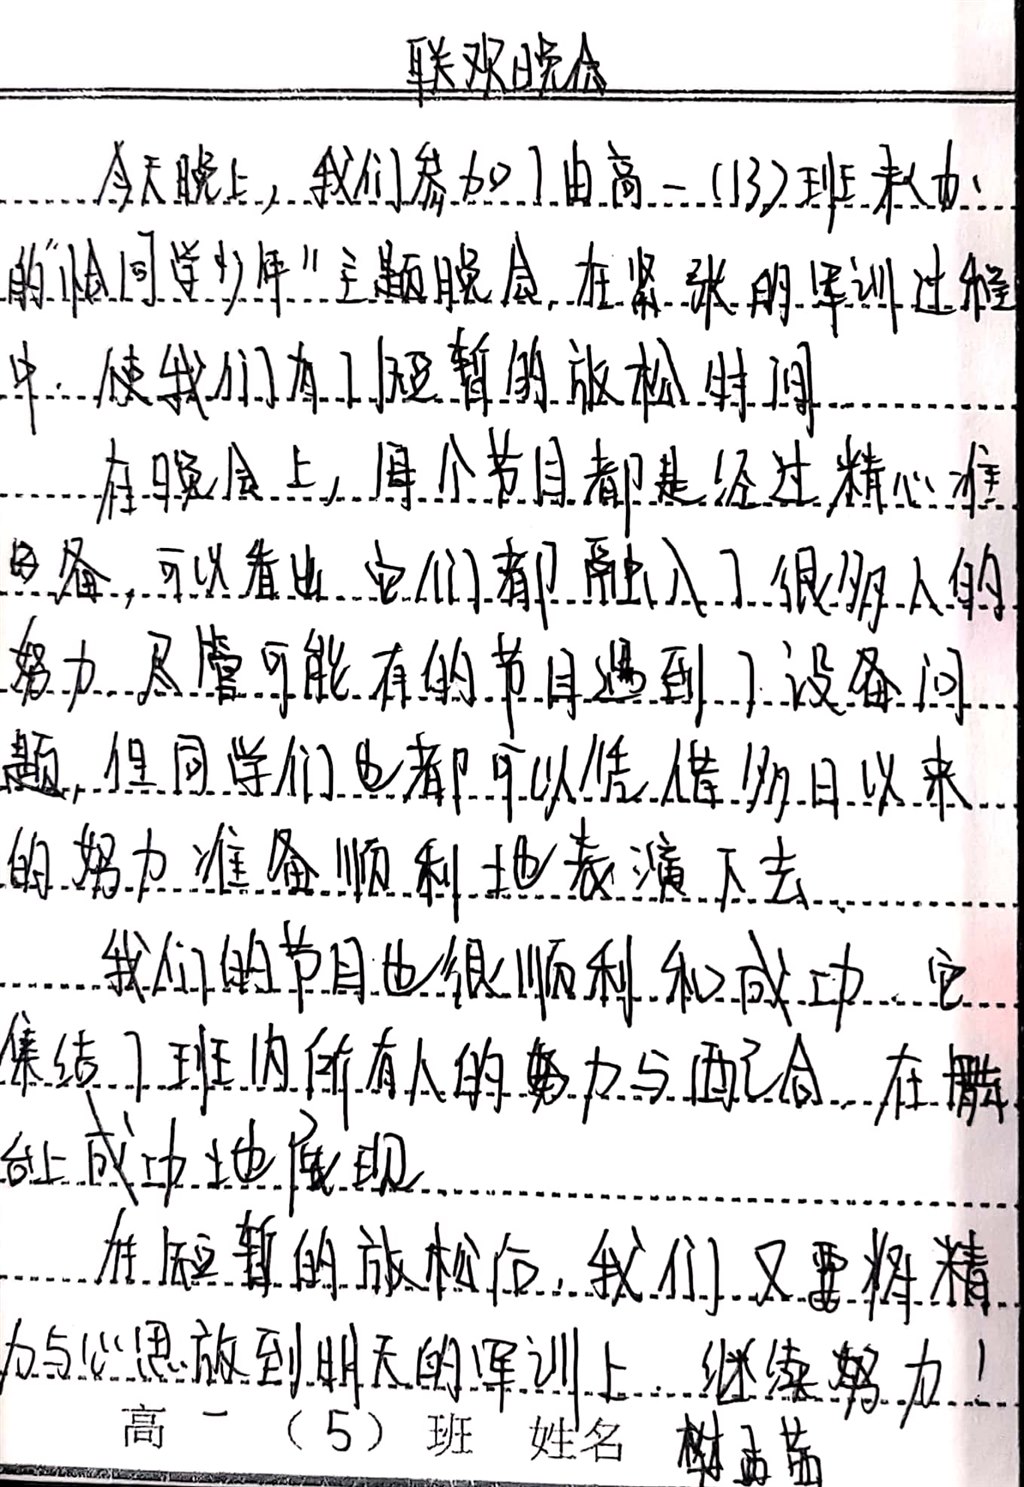 联欢晚会
今天晚上，我们参加了由高一(13)班承办
的“恰同学少年”主题晚会.在紧张的军训过程
中.使我们有了短暂的放松时间
在晚会上，每个节目都是经过精心准
备，可以看出它们都融入了很多人的
努力.尽管可能有的节目遇到了设备问
题，但同学们也都可以凭借多日以来
的努力准备顺利地表演下去.
我们的节目也很顺利和成功.它
集结了班内所有人的努力与配合.在舞
台上成功地展现
在短暂的放松后.我们又要将精
力与心思放到明天的军训上.继续努力！
高一（5）班 姓名